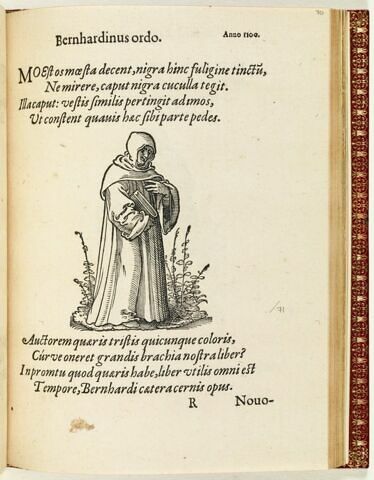 70
Bernhardinus ordo.
Anno 1100.
MOESTOS mœsta decent, nigra hinc fuligine tinctũ,
Ne mirere, caput nigra cuculla tegit.
Illa caput: vestis similis pertingit ad imos,
Vt constent quauis hæc sibi parte pedes.
/71
Auctorem quæris tristis quicunque coloris,
Cúrve oneret grandis brachia nostra liber?
Inpromtu quod quæris habe, liber vtilis omni est
Tempore, Bernhardi cætera cernis opus.
R
Nouo-